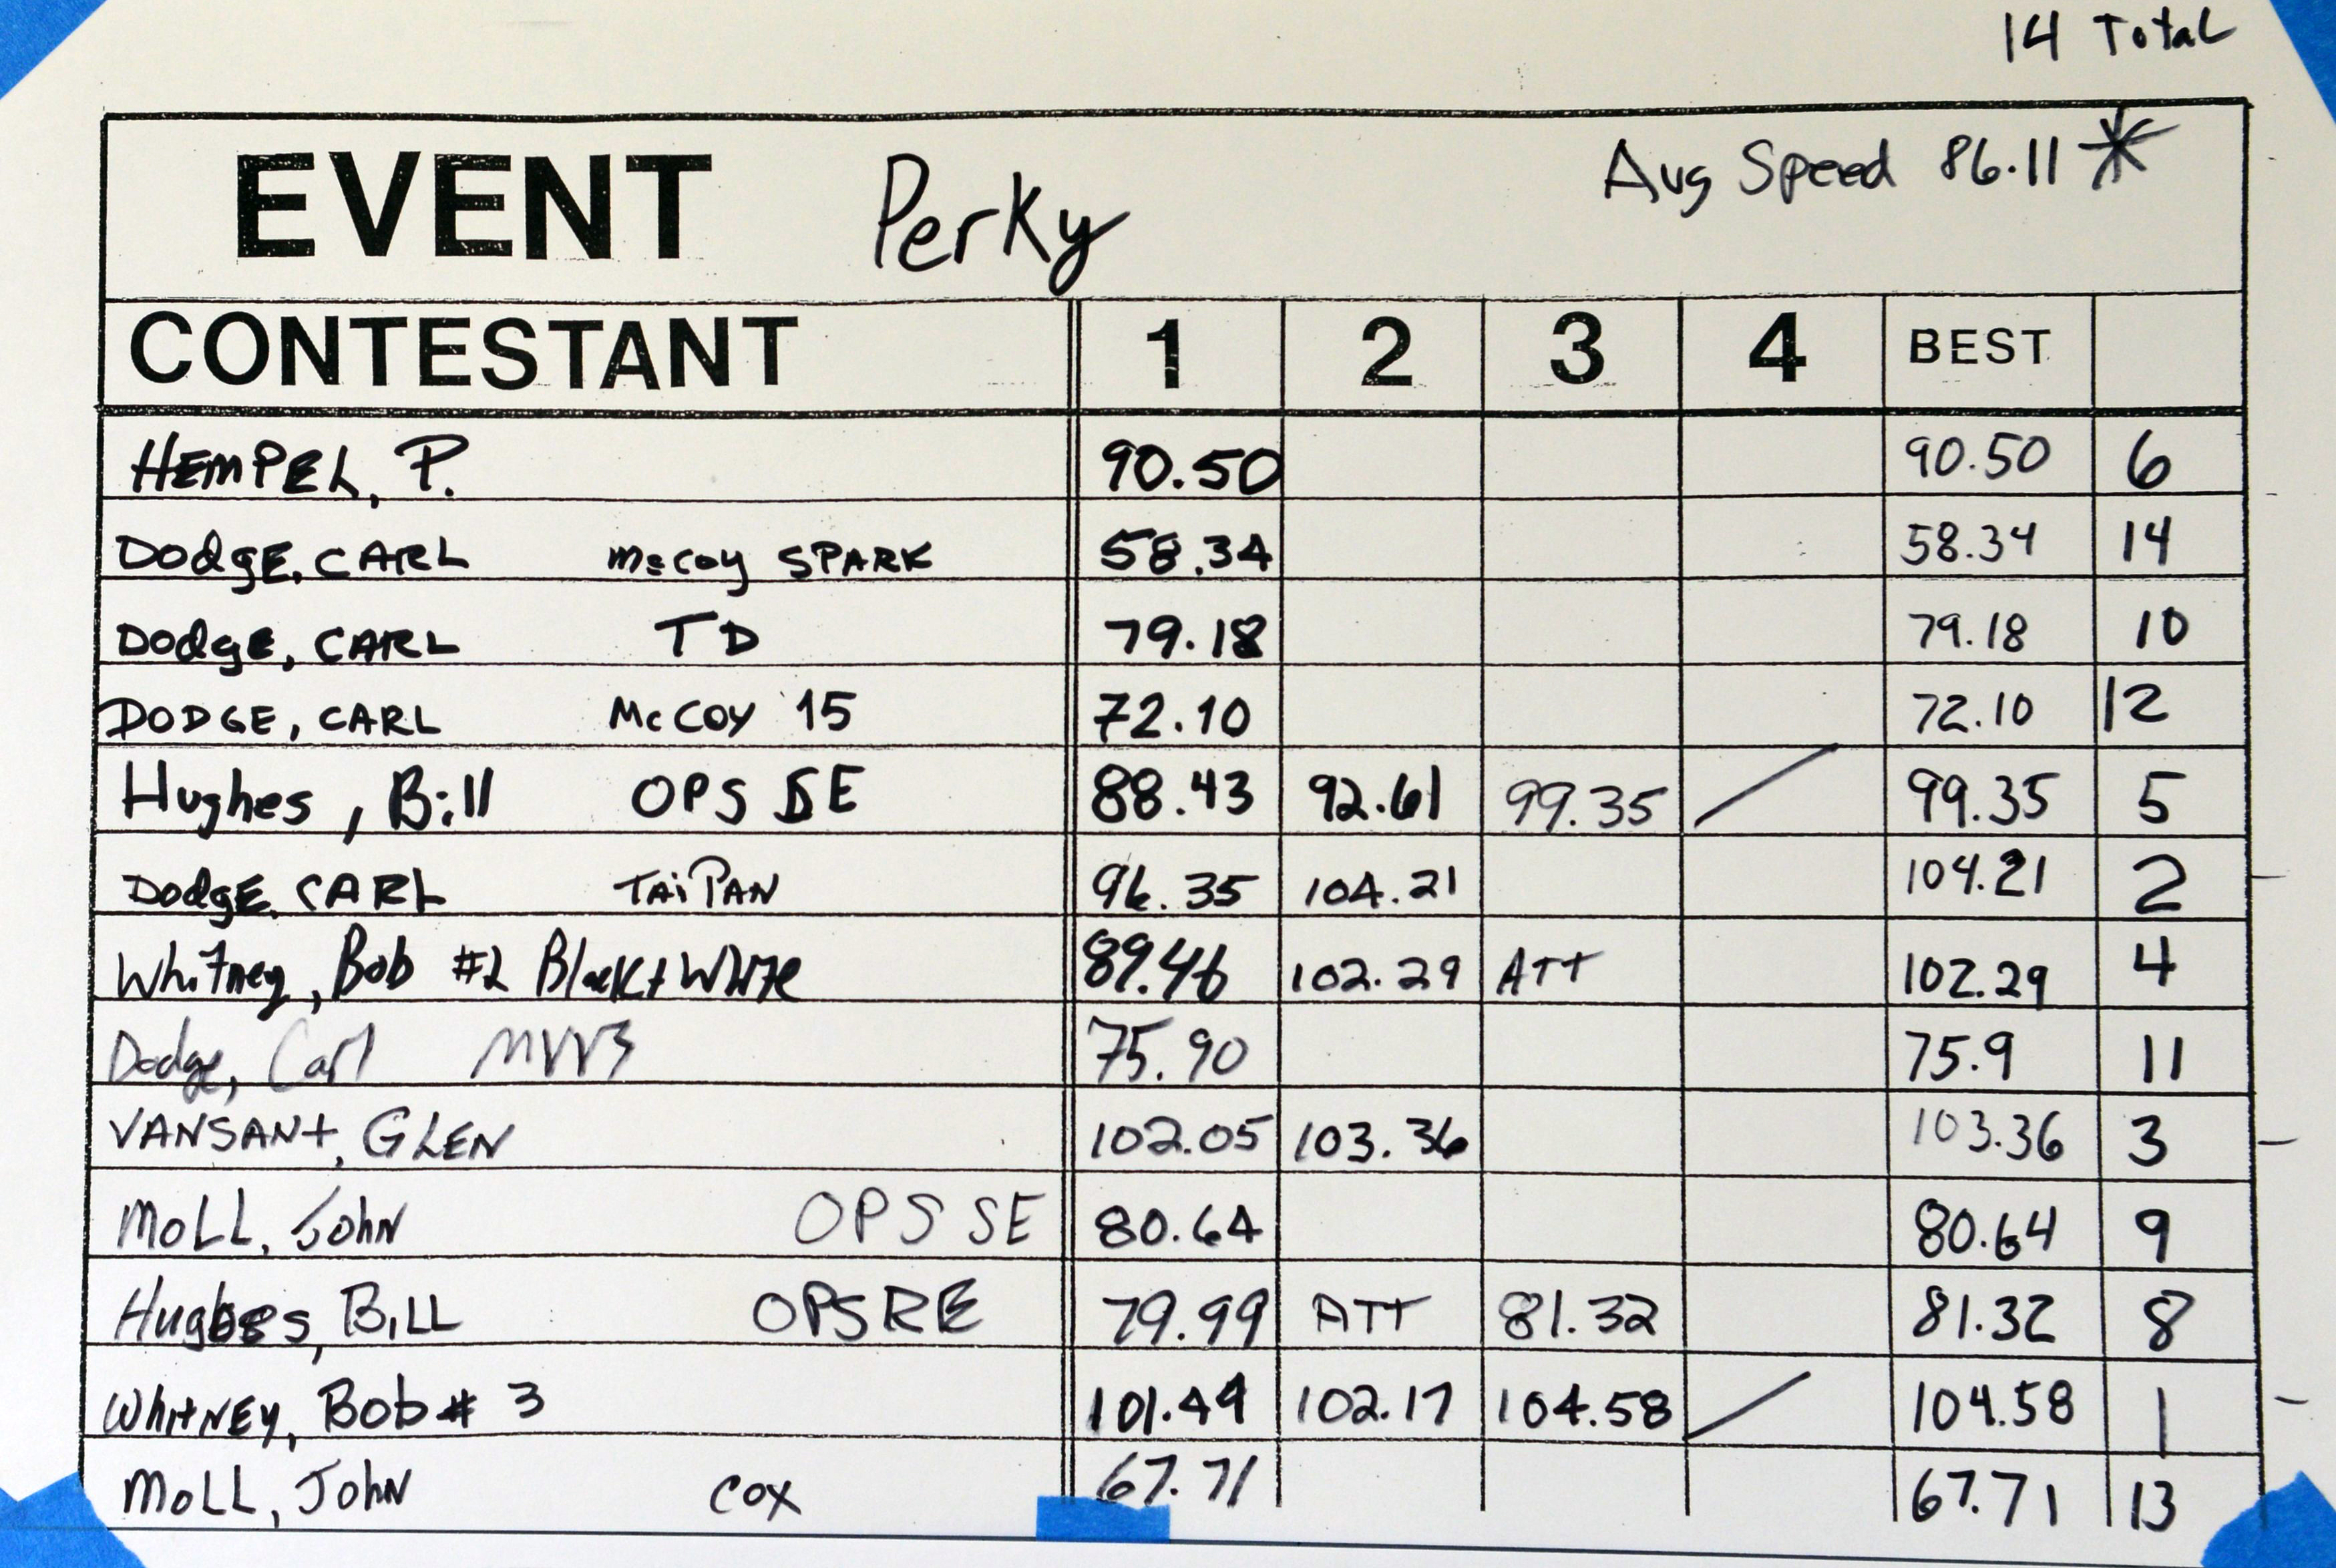 14 Total
EVENT Perky Avg Speed 86.11 *
CONTESTANT 1 2 3 4 BEST
HEMPEL, P. 90.50 90.50 6
DodgE, CARL McCoy SPARK 58.34 58.34 14
DodgE, CARL TD 79.18 79.18 10
DODGE, CARL McCOY 15 72.10 72.10 12
Hughes, Bill OPS SE 88.43 92.61 99.35 / 99.35 5
DodgE, CARL TAiPAN 96.35 104.21 104.21 2
Whitney, Bob #2 Black + White 89.46 102.29 ATT 102.29 4
Dodge, Carl MVVS 75.90 75.9 11
VANSANt, GLEN 102.05 103.36 103.36 3
MoLL, John OPS SE 80.64 80.64 9
Hughes, BiLL OPS RE 79.99 ATT 81.32 81.32 8
WhitNEY, Bob # 3 101.49 102.17 104.58 / 104.58 1
MoLL, John COX 67.71 67.71 13